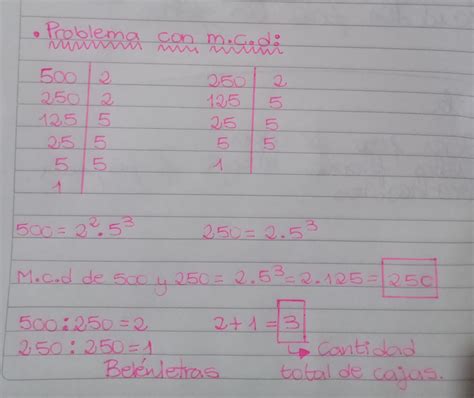 • Problema con m.c.d:
500 | 2      250 | 2
250 | 2      125 | 5
125 | 5      25 | 5
25 | 5      5 | 5
5 | 5      1
1
500 = 2².5³      250 = 2.5³
M.c.d de 500 y 250 = 2.5³ = 2.125 = 250
500:250 = 2      2+1 = 3
250:250 = 1      ↳ Cantidad
Belénletras      total de cajas.